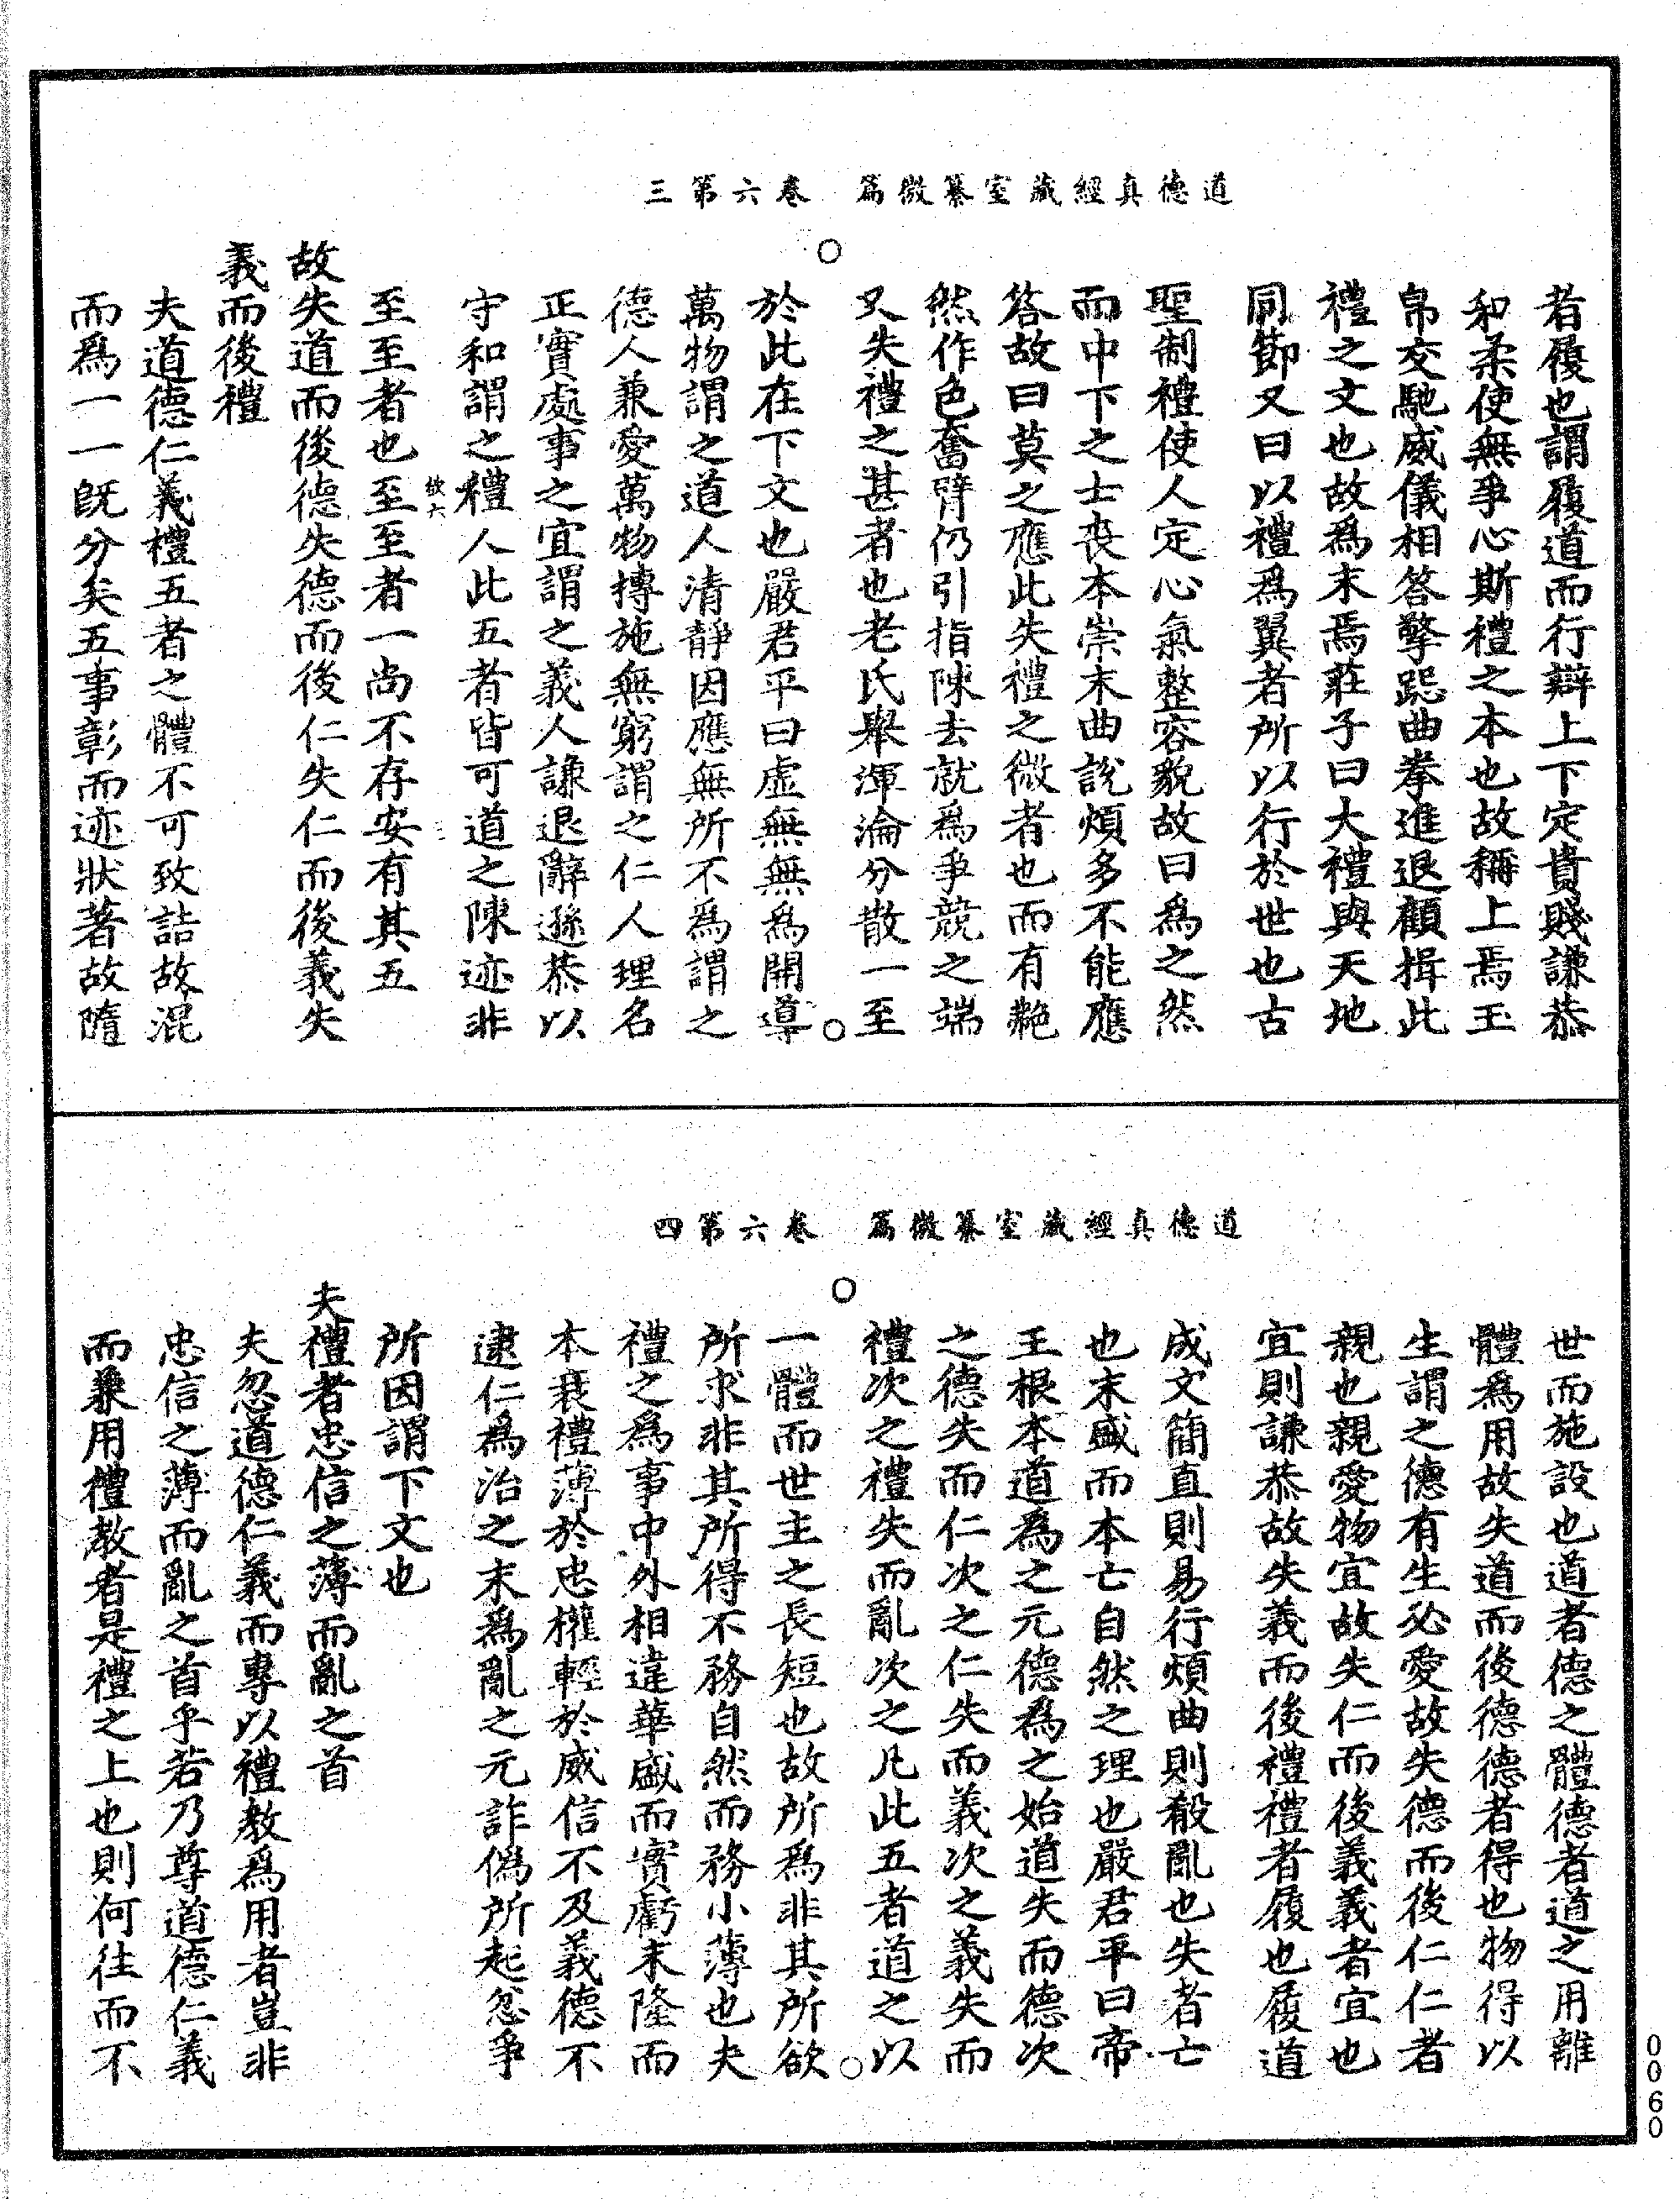 道德真經藏室纂微篇　卷六第三
者履也謂履道而行辯上下定貴賤謙恭
和柔使無爭心斯禮之本也故稱上焉玉
帛交馳威儀相答擎跽曲拳進退顧揖此
禮之文也故爲末焉莊子曰大禮與天地
同節又曰以禮爲翼者所以行於世也古
聖制禮使人定心氣整容貌故曰爲之然
而中下之士喪本崇末曲說煩多不能應
答故曰莫之應此失禮之微者也而有艴
然作色奮臂仍引指陳去就爲爭競之端
又失禮之甚者也老氏舉渾淪分散一至
於此在下文也嚴君平曰虛無無爲開導
萬物謂之道人清靜因應無所不爲謂之
德人兼愛萬物摶施無窮謂之仁人理名
正實處事之宜謂之義人謙退辭遜恭以
守和謂之禮人此五者皆可道之陳迹非
至至者也至至者一尚不存安有其五
故失道而後德失德而後仁失仁而後義失
義而後禮
夫道德仁義禮五者之體不可致詰故混
而爲一一既分矣五事彰而迹狀著故隋
道德真經藏室纂微篇　卷六第四
世而施設也道者德之體德者道之用離
體爲用故失道而後德德者得也物得以
生謂之德有生必愛故失德而後仁仁者
親也親愛物宜故失仁而後義義者宜也
宜則謙恭故失義而後禮禮者履也履道
成文簡直則易行煩曲則殽亂也失者亡
也末盛而本亡自然之理也嚴君平曰帝
王根本道爲之元德爲之始道失而德次
之德失而仁次之仁失而義次之義失而
禮次之禮失而亂次之凡此五者道之以
一體而世主之長短也故所爲非其所欲
所求非其所得不務自然而務小薄也夫
禮之爲事中外相違華盛而實虧末隆而
本衰禮薄於忠權輕於威信不及義德不
逮仁爲治之末爲亂之元詐偽所起忿爭
所因謂下文也
夫禮者忠信之薄而亂之首
夫忽道德仁義而專以禮教爲用者豈非
忠信之薄而亂之首乎若乃尊道德仁義
而兼用禮教者是禮之上也則何往而不
0060